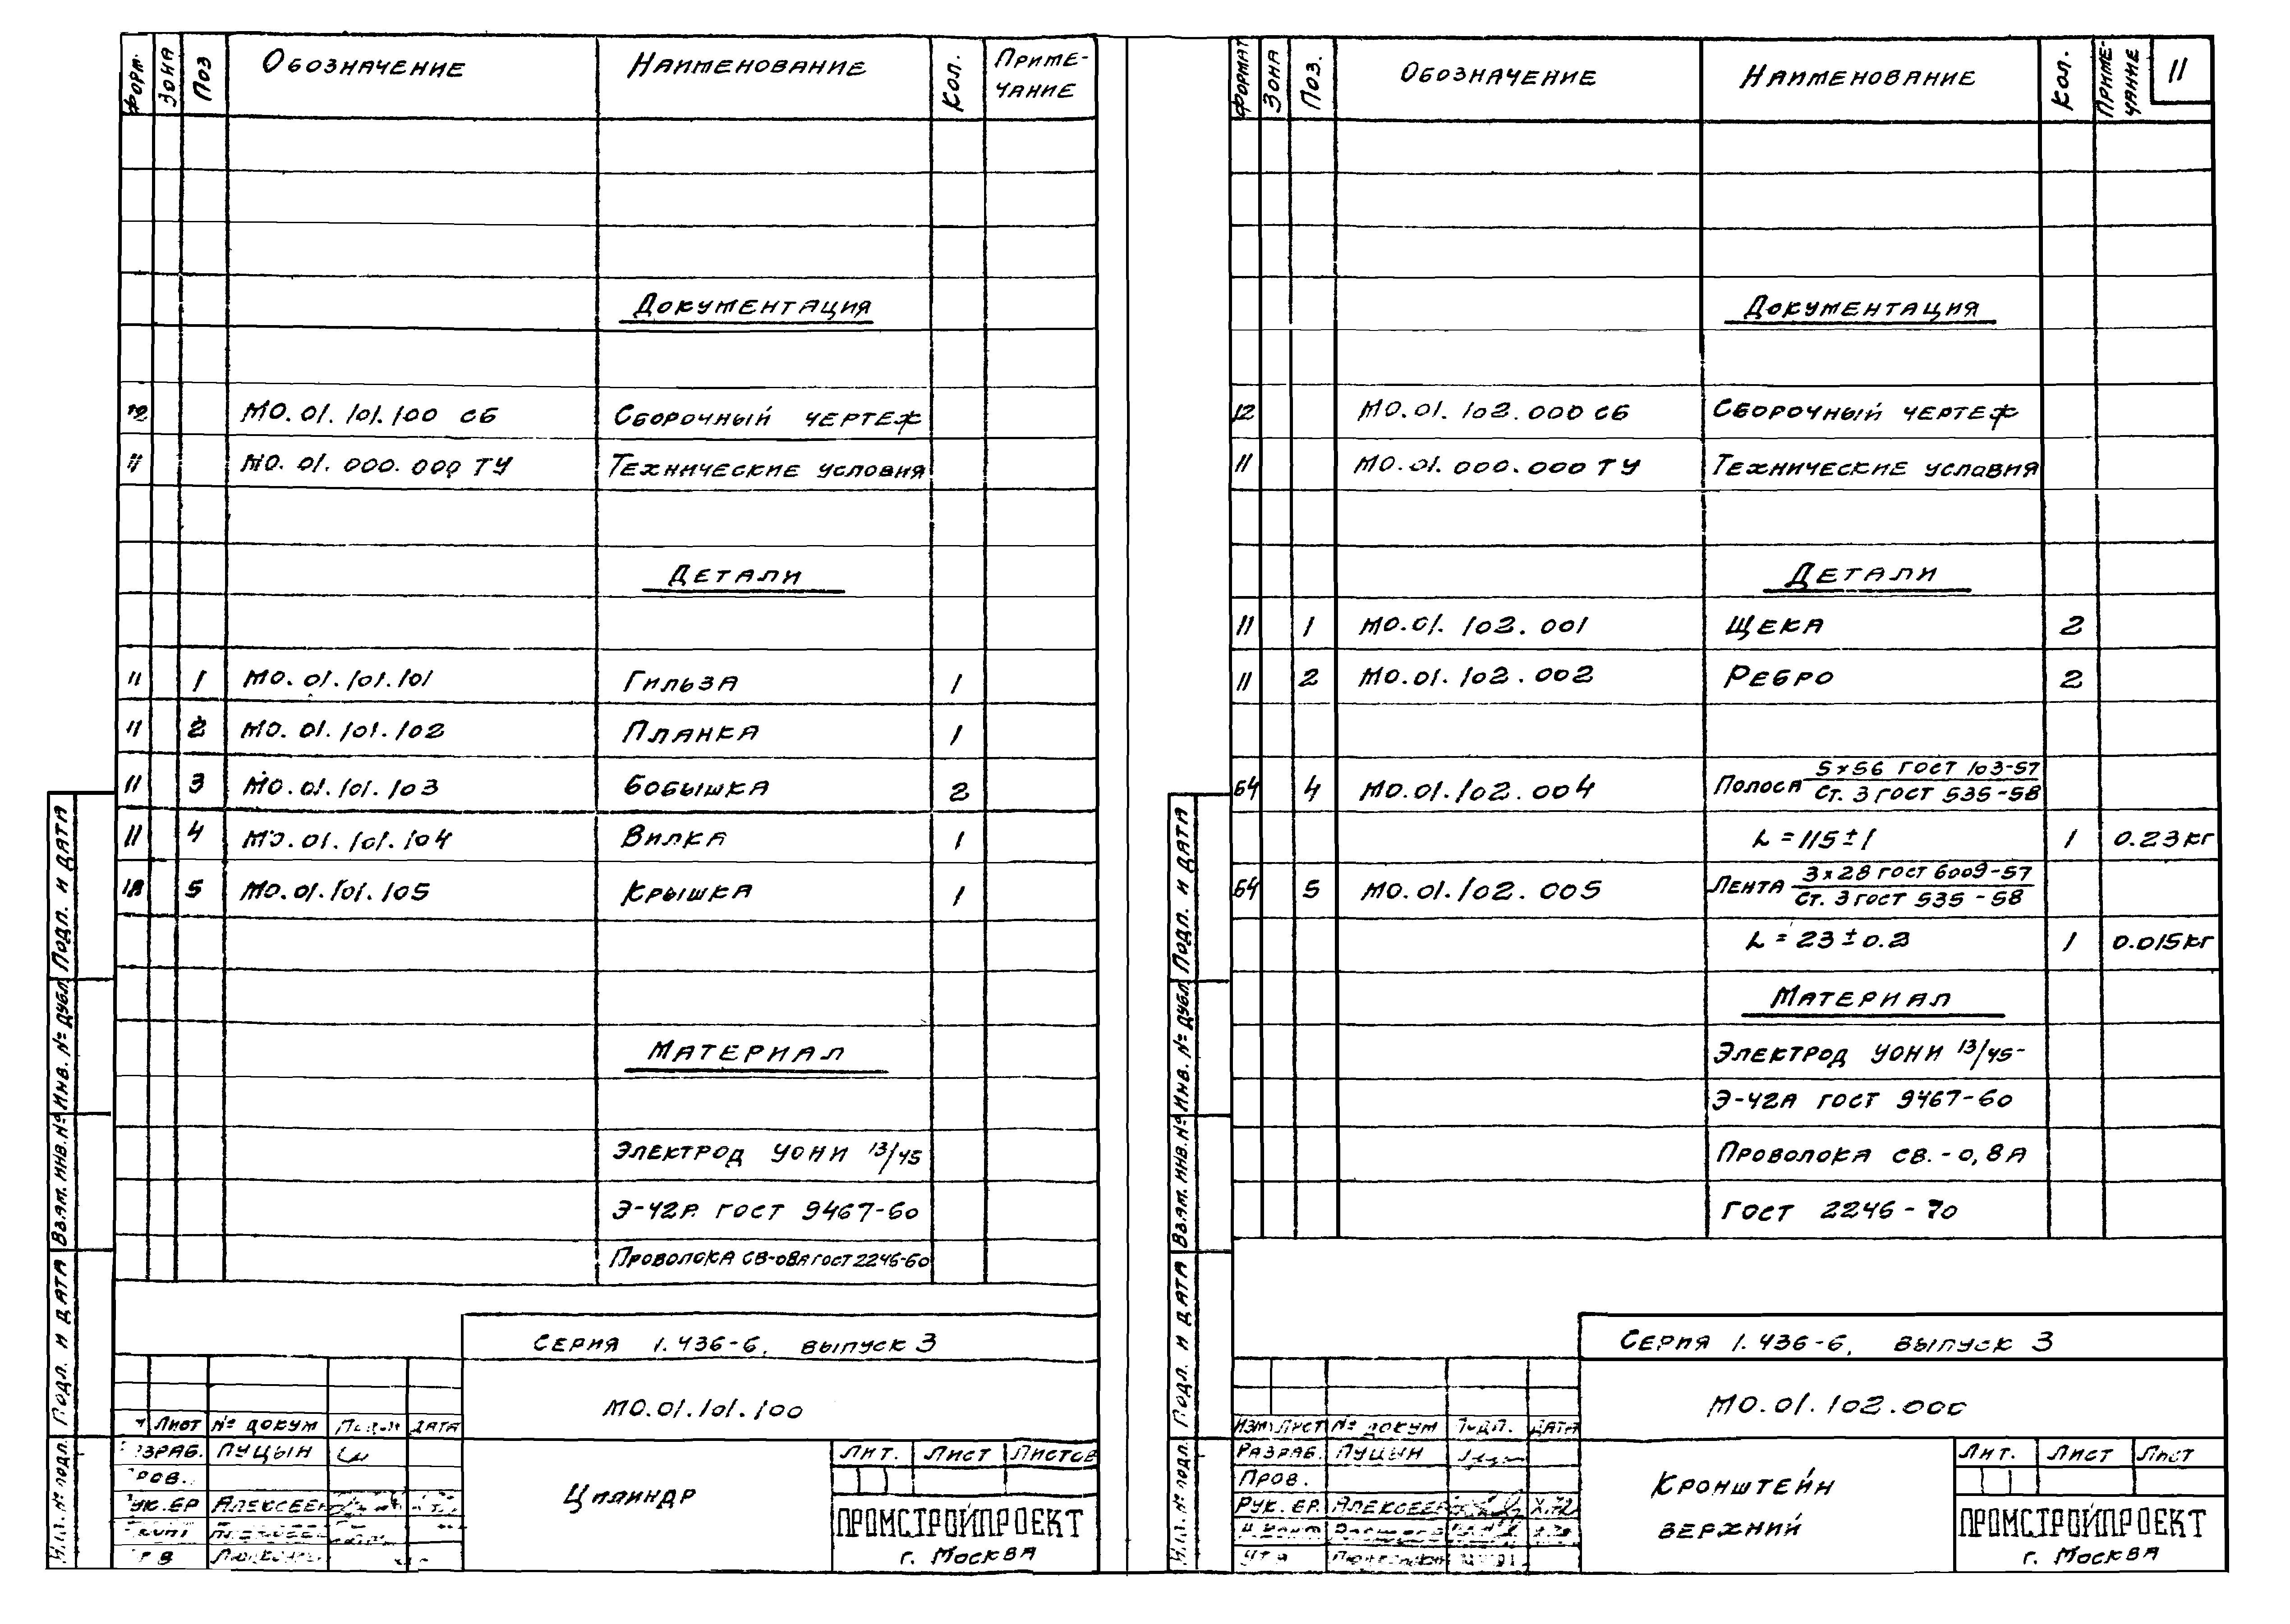 Форм. Зона Поз Обозначение Наименование Кол. Приме-
чание
Документация
12 МО.01.101.100 СБ Сборочный чертеж
11 МО.01.000.000 ТУ Технические условия
Детали
11 1 МО.01.101.101 Гильза 1
11 2 МО.01.101.102 Планка 1
11 3 МО.01.101.103 Бобышка 2
11 4 МО.01.101.104 Вилка 1
5 МО.01.101.105 Крышка 1
Материал
Электрод УОНИ 13/45
Э-42А ГОСТ 9467-60
Проволока СВ-08А ГОСТ 2246-60
Подп. и дата
Инв. № дубл.
Взам. инв. №
Подл. и дата
№ подл.
Серия 1.436-6, выпуск 3
МО.01.101.100
Лист № докум Дата
Пуцын
Алексеев
Цилиндр
Лит. Лист Листов
ПРОМСТРОЙПРОЕКТ
г. Москва
Формат Зона Поз. Обозначение Наименование Кол. Приме-
чание
11
Документация
12 МО.01.102.000 СБ Сборочный чертеж
11 МО.01.000.000 ТУ Технические условия
Детали
11 1 МО.01.102.001 Щека 2
11 2 МО.01.102.002 Ребро 2
5×56 ГОСТ 103-57
Б4 4 МО.01.102.004 Полоса
Ст. 3 ГОСТ 535-58
L = 115 ± 1 1 0.23 кг
3×28 ГОСТ 6009-57
Б4 5 МО.01.102.005 Лента
Ст. 3 ГОСТ 535-58
L = 23 ± 0.2 1 0.015 кг
Материал
Электрод УОНИ 13/45-
Э-42А ГОСТ 9467-60
Проволока СВ.-0,8А
ГОСТ 2246-70
Подп. и дата
Инв. № дубл.
Взам. инв. №
Подл. и дата
№ подл.
Серия 1.436-6, выпуск 3
МО.01.102.000
Изм Лист № докум Подп. Дата
Разраб. Пуцын
Пров.
Рук. Алексеев
Кронштейн
верхний
Лит. Лист Лист
ПРОМСТРОЙПРОЕКТ
г. Москва